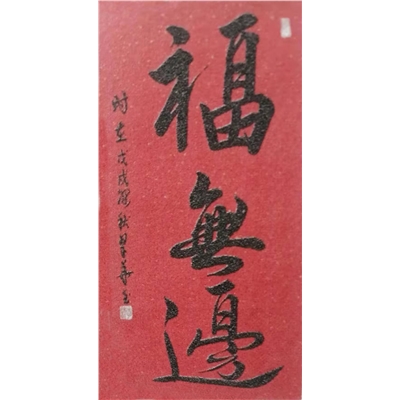 福無邊
时在戊戌